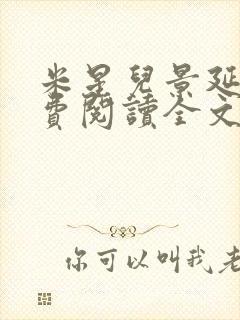 米星兒景延
費閱讀全文
你可以叫我老